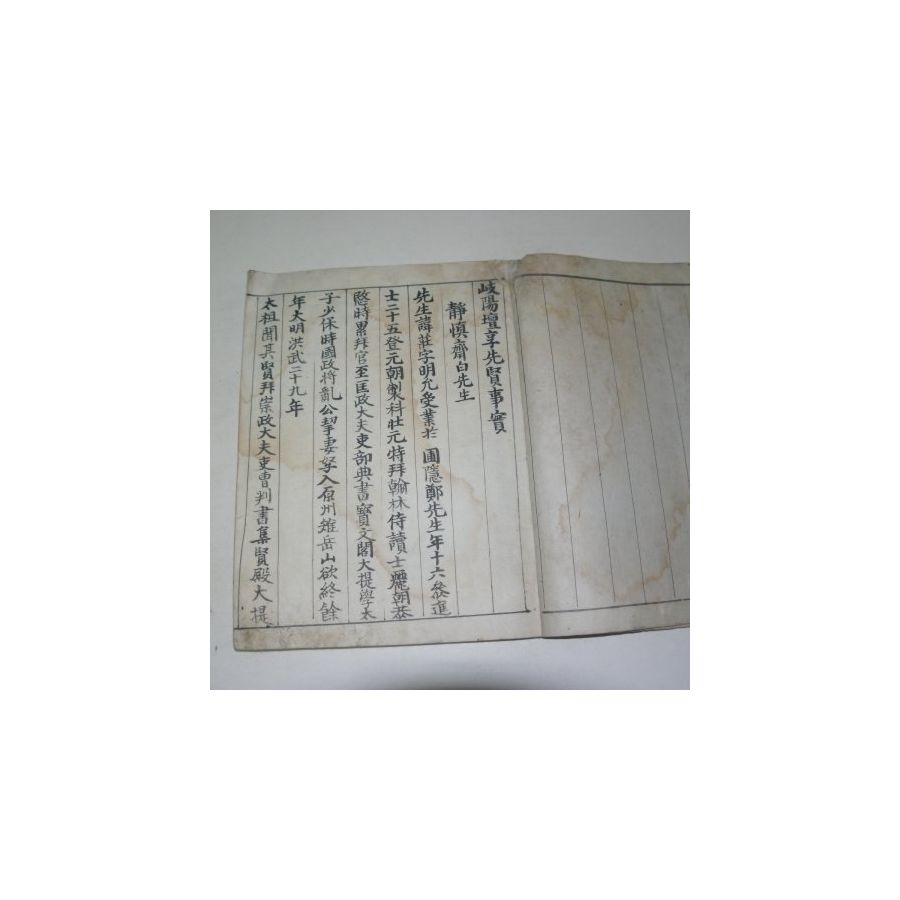 岐陽壇享先賢事實
靜愼齋白先生
先生諱莊字明允受業於 圃隱鄭先生年十六叅進
士二十五登元朝製科壯元特拜翰林侍讀士麗朝恭
愍時累拜官至匡政大夫吏部典書寶文閣大提學太
子少保時國政將亂公挈妻孥入原州雉岳山欲終餘
年大明洪武二十九年
太祖聞其賢拜崇政大夫吏曹判書集賢殿大提